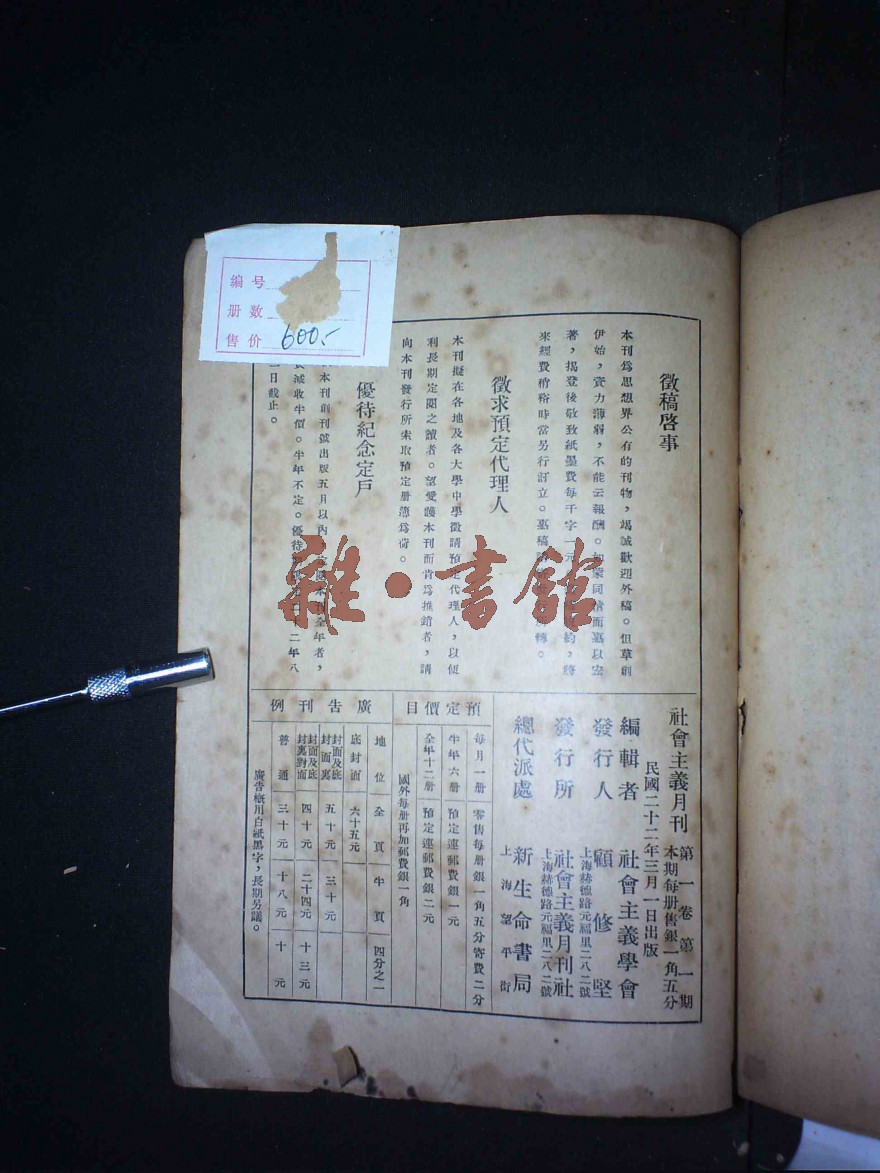 编号
册数
售价 600.-
徵稿啓事
本刊爲思想界公有的刊物，竭誠歡迎外稿。但草創
伊始，資力薄弱，不能云報酬。如蒙同情而惠以宏
著，揭登後敬致紙墨費每千字一元
約，將
來經費稍裕時當另行訂立。惠稿
轉。
徵求預定代理人
本刊擬在各地及各大學中學徵請預定代理人，以便
利長期定閱之讀者。望愛護本刊而肯爲推銷者，請
向本刊發行所索取預定册簿爲荷。
優待紀念定戶
本刊創刊號出版五月以內
全年者，
減收半價。半年不定。優待
二年八
日截止。
雜·書館
社會主義月刊 第一卷第一期
本期每册售銀一角五分
民國二十二年三月一日出版
編輯者 社會主義學會
發行人 顧修堅
上海赫德路元福里二八二號
發行所 社會主義月刊社
上海赫德路元福里二八二號
總代派處 新生命書局
上海望平街
預定價目
每月一册 零售每册銀一角五分寄費二分
半年六册 預定連郵費銀一元
全年十二册 預定連郵費銀二元
國外每册再加郵費銀一角
廣告刊例
地位 全頁 半頁 四分之一
底封面 六十五元
封面及底封面裏 五十元 三十元
封面及底封裏對面 四十元 二十四元 十三元
普通 三十元 十八元 十元
廣告概用白紙黑字，長期另議。